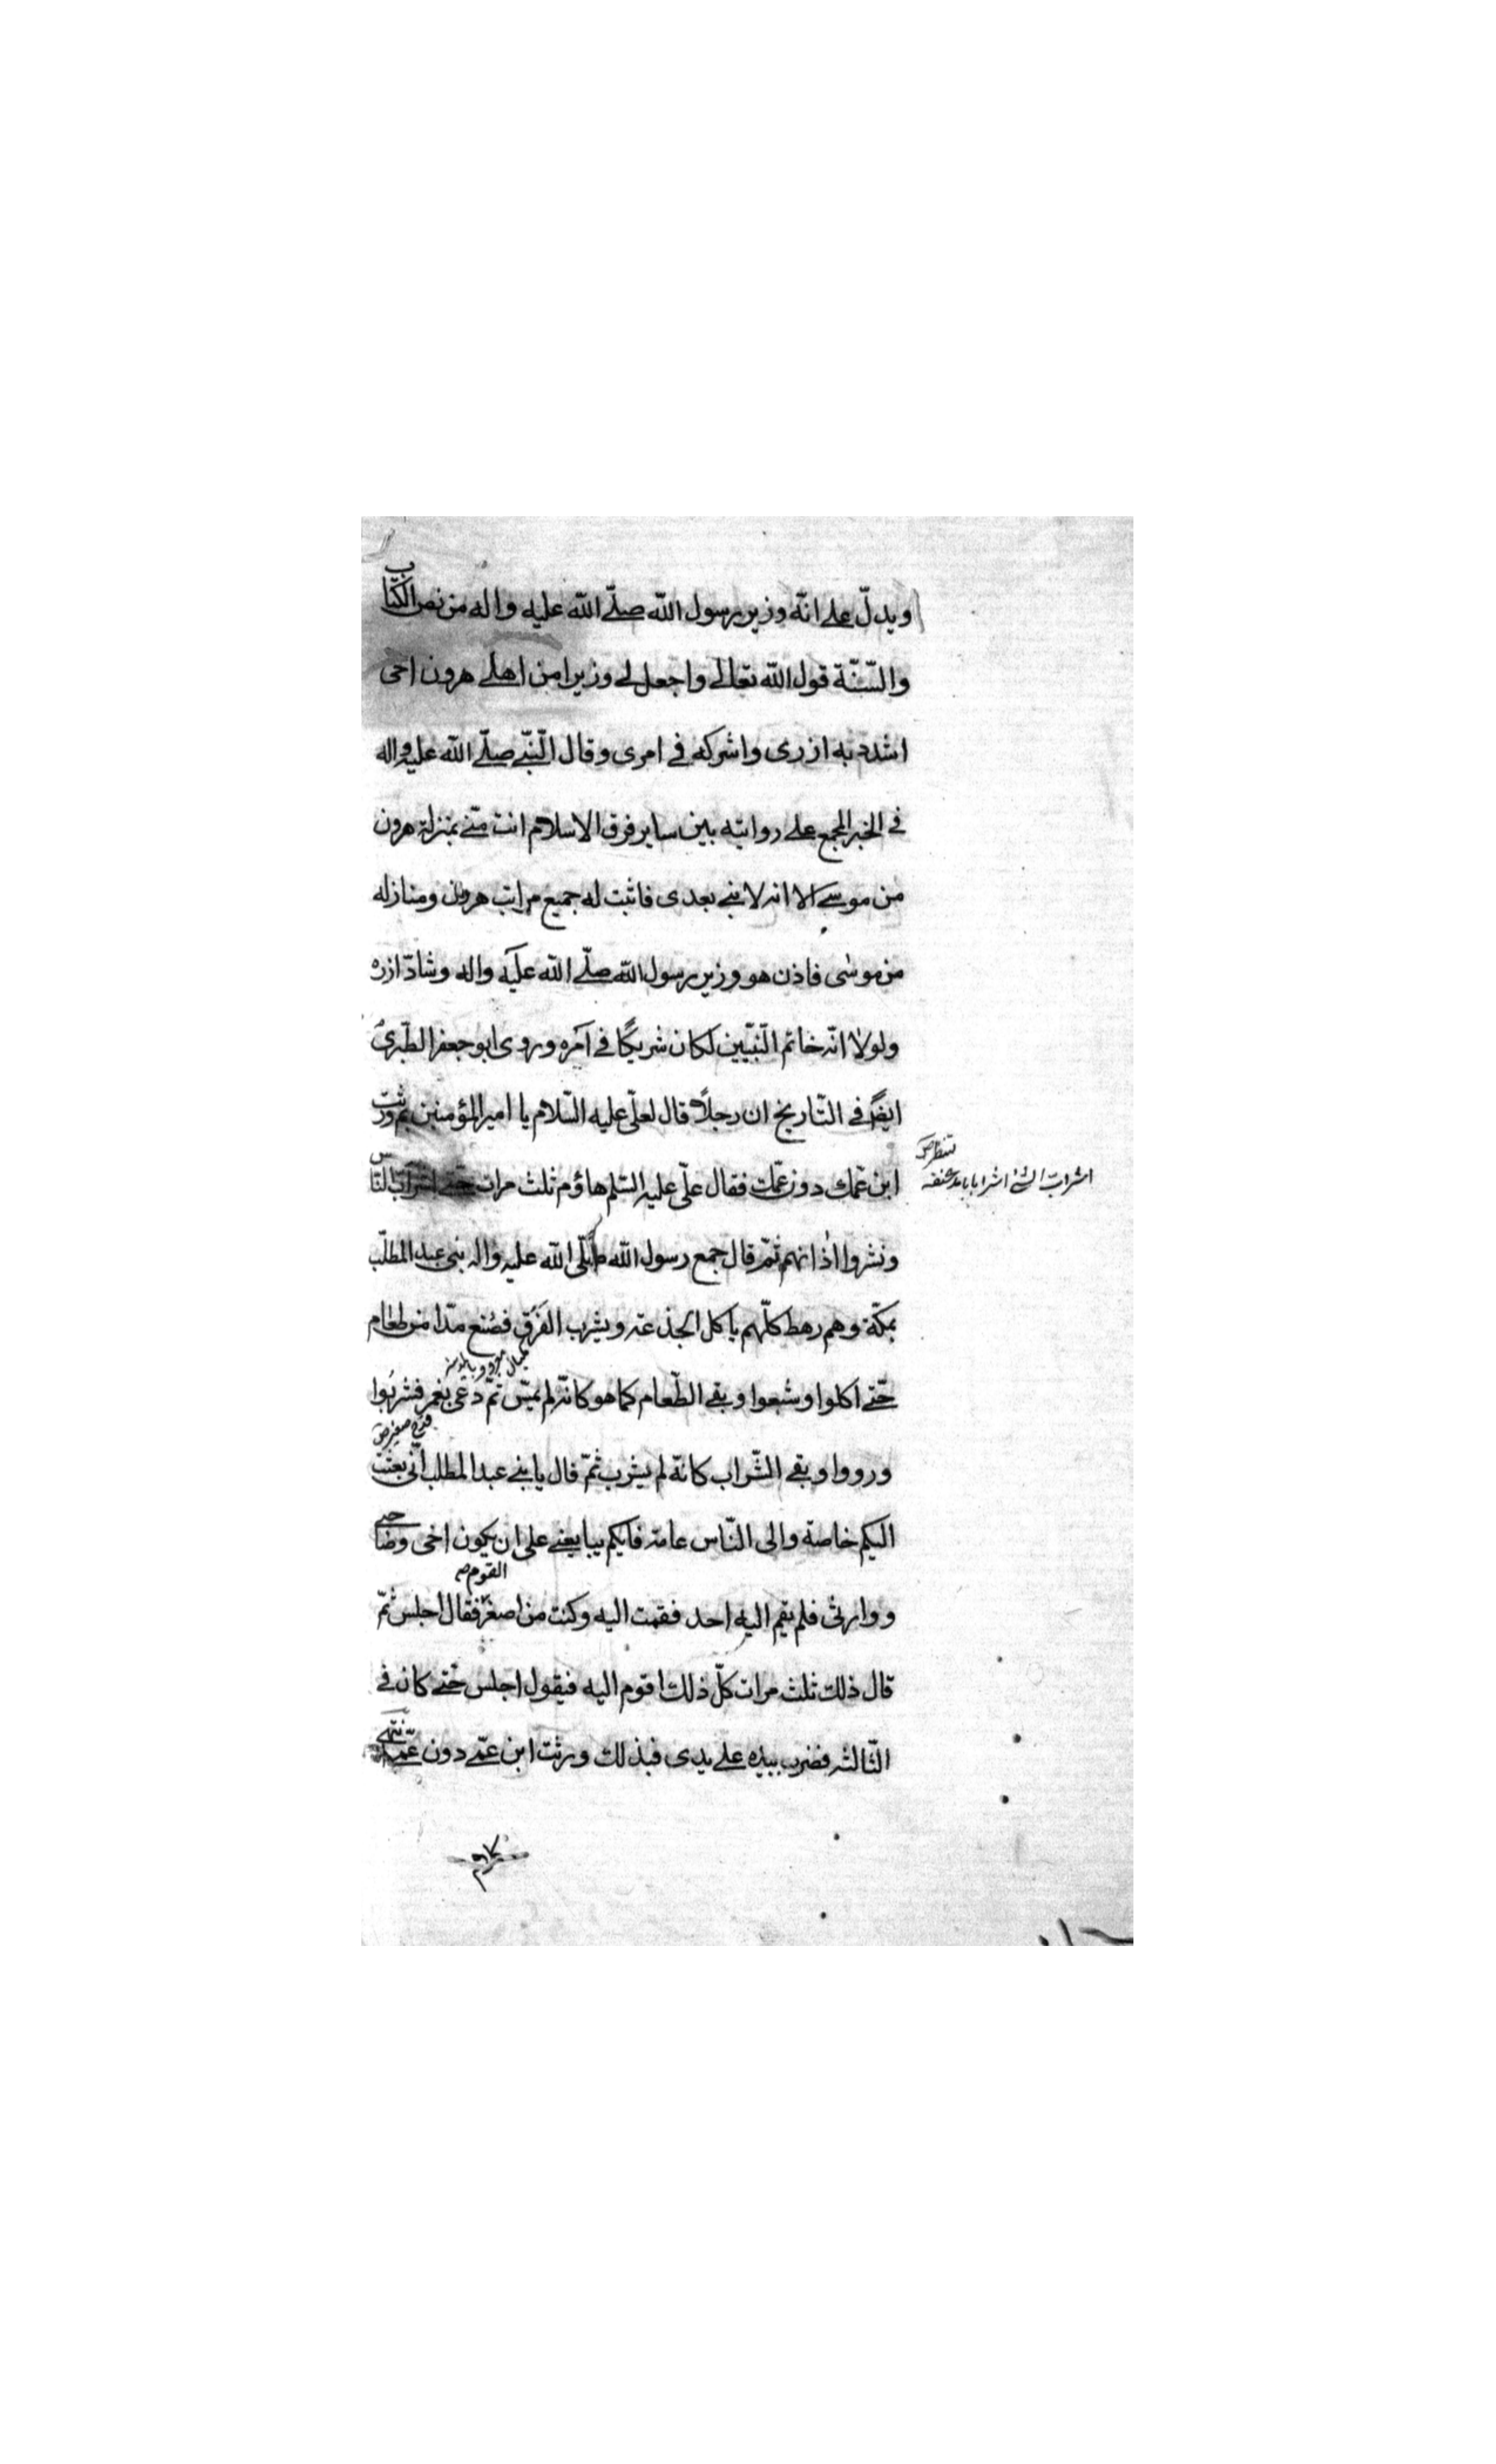 ويدلّ على انّه وزير رسول اللّه صلّى اللّه عليه واله من نصّ الكتاب
والسّنّة قول اللّه تعالى واجعل لى وزيرا من اهلى هرون اخى
اشدد به ازرى واشركه فى امرى وقال النّبّى صلّى اللّه عليه واله
فى الخبر المجمع على روايته بين ساير فرق الاسلام انت منّى بمنزلة هرون
من موسى الا انه لا نبى بعدى فاثبت له جميع مراتب هرون ومنازله
من موسى فاذن هو وزير رسول اللّه صلّى اللّه عليه واله وشادّ ازره
ولولا انّه خاتم النّبيّين لكان شريكًا فى امره وروى ابو جعفر الطّبرىّ
ايضًا فى التّاريخ ان رجلًا قال لعلىّ عليه السّلام يا امير المؤمنين بم ورثت
ابن عمّك دون عمّك فقال علىّ عليه السّلم هاؤم ثلث مرات حتّى اشرابّ النّاس
اشرابّ الشئ اشرابا بامد عنقه
لتنظر ص
ونشروا اذانهم ثمّ قال جمع رسول اللّه صلّى اللّه عليه واله بنى عبد المطلّب
بمكّة وهم رهط كلّهم ياكل الجذعة ويشرب الفَرَق فصنع مدّا من طعام
مكيال
حتّى اكلوا وشبعوا وبقى الطّعام كما هو كانّه لم يمسّ ثمّ دعى بغمر فشربوا
قدح صغير ص
ورووا وبقى الشّراب كانّه لم يشرب ثمّ قال يا بنى عبد المطلب انّى بعثت
اليكم خاصة والى النّاس عامة فايكم يبايعنى على ان يكون اخى وصاحبى
القوم
ووارثى فلم يقم اليه احد فقمت اليه وكنت من اصغر فقال اجلس ثمّ
قال ذلك ثلث مرات كلّ ذلك اقوم اليه فيقول اجلس حتّى كان فى
الثّالثه فضرب بيده على يدى فبذلك ورثت ابن عمّى دون عمّى انتهى